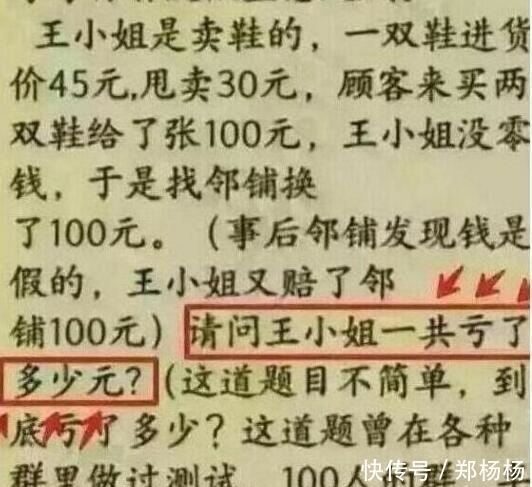 王小姐是卖鞋的，一双鞋进货
价45元,甩卖30元，顾客来买两
双鞋给了张100元，王小姐没零
钱，于是找邻铺换
了100元。（事后邻铺发现钱是
假的，王小姐又赔了邻
铺100元）请问王小姐一共亏了
多少元？（这道题目不简单，到
底亏了多少？这道题曾在各种
群里做过测试，100人
快传号／郑杨杨